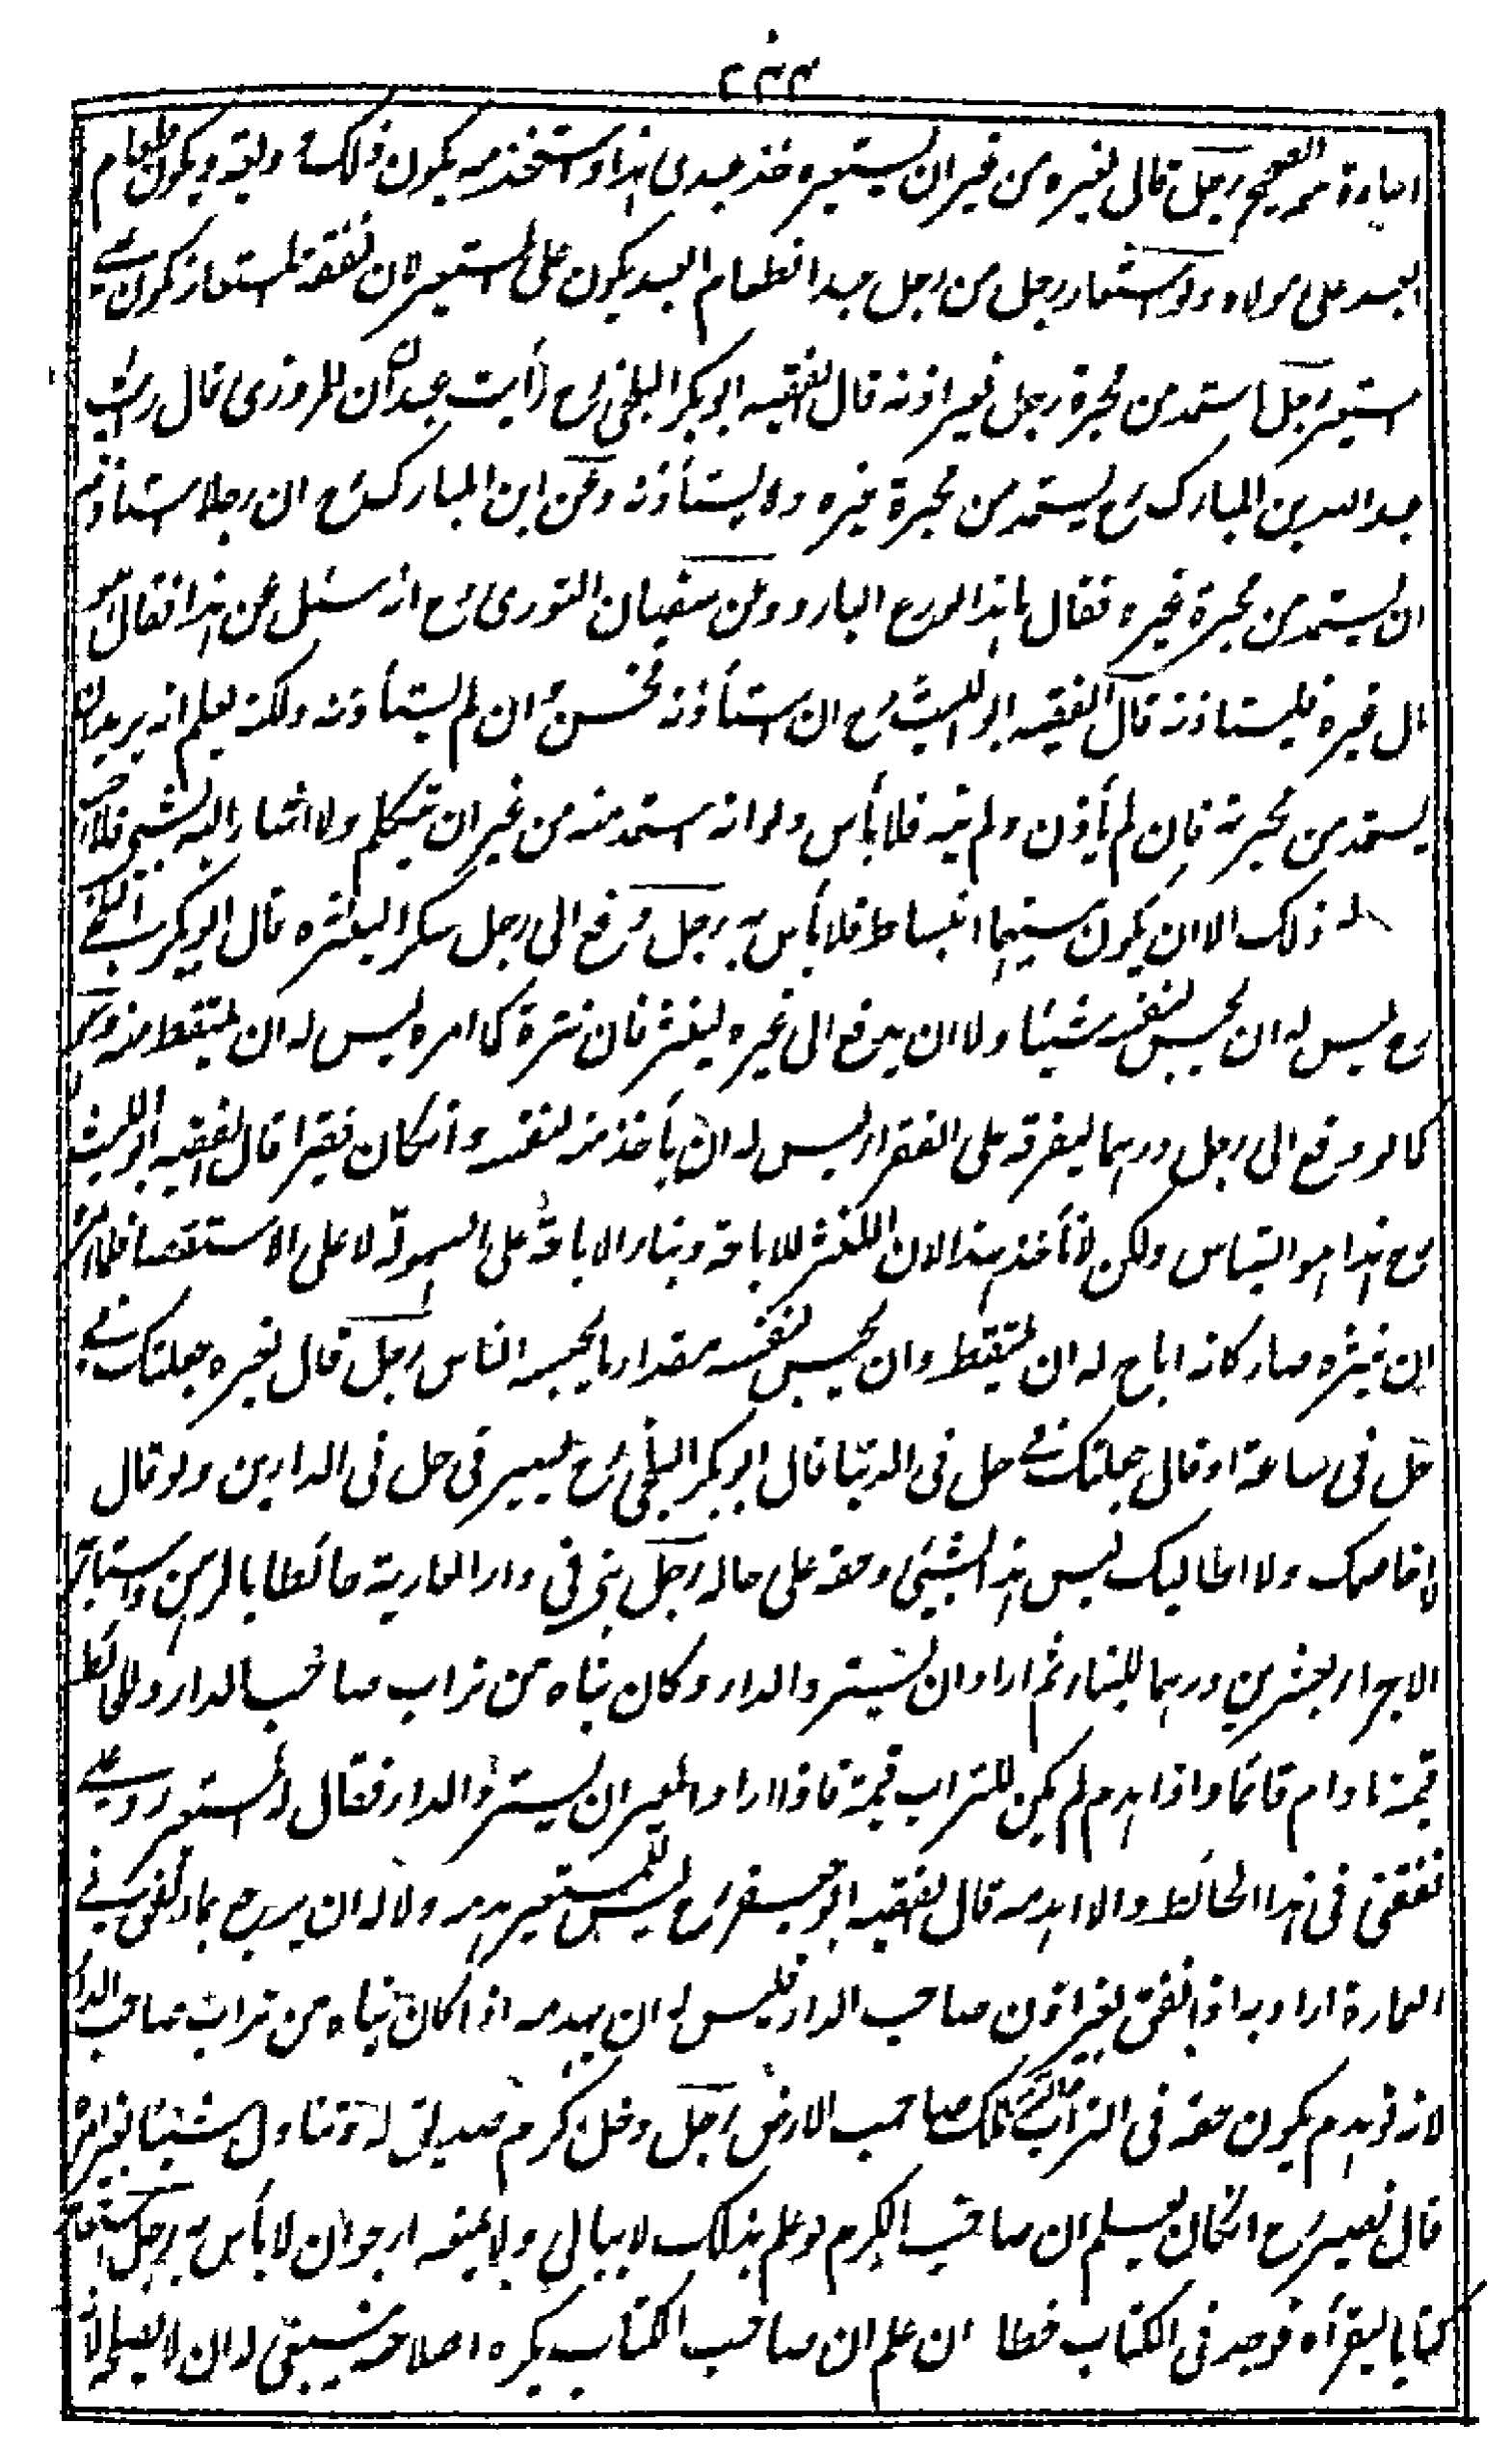 اعادة هو الصحيح رجل قال لغيره من غير ان يستعيره خذ عبدى هذا واستخدمه يكون ذلك وديعة ويكون طعام
العبد على مولاه ولو استعار رجل من رجل عبدا فطعام العبد يكون على المستعير لان نفقة المستعار تكون على
المستعير رجل استمد من محبرة رجل بغير اذنه قال الفقيه ابو بكر البلخى رح رأيت عبدان المروزى قال رأيت
عبد الله بن المبارك رح يستمد من محبرة غيره ولا يستأذنه وعن ابن المبارك رح ان رجلا استأذنه
ان يستمد من محبرة غيره فقال ما هذا الورع البارد وعن سفيان الثورى رح انه سئل عن هذا فقال هو
مال غيره فليستاذنه قال الفقيه ابو الليث رح ان استأذنه فحسن وان لم يستأذنه ولكنه يعلم انه يريد ان
يستمد من محبرته فان لم يأذن ولم ينه فلا بأس ولو انه استمد منه من غير ان يتكلم ولا اشار اليه بشئ فلا احب
له ذلك الا ان يكون بينهما انبساط فلا بأس به رجل دفع الى رجل سكرا لينثره قال ابو بكر البلخى
رح ليس له ان يحبس لنفسه شيئا ولا ان يدفع الى غيره لينثر فان نثره كما امره ليس له ان يلتقط منه
كما لو دفع الى رجل درهما ليفرقه على الفقراء ليس له ان يأخذ منه لنفسه وان كان فقيرا قال الفقيه ابو الليث
رح هذا هو القياس ولكن لا نأخذ بهذا لان النثر للاباحة وبناء الاباحة على السهولة لا على الاستقصاء فلما امره
ان ينثره صار كانه اباح له ان يلتقط وان يحبس لنفسه مقدار ما يحبسه الناس رجل قال لغيره جعلتك فى
حل فى ساعة او قال جعلتك فى حل فى الدنيا قال ابو بكر البلخى رح يصير فى حل فى الدارين ولو قال
لا اخاصمك ولا اطالبك ليس هذا بشئ وحقه على حاله رجل بنى فى دار العارية حائطا بالرهص واستاجر
الاجراء بعشرين درهما للبناء ثم اراد ان يسترد الدار وكان بناه من تراب صاحب الدار وللحائط
قيمة ما دام قائما واذا هدم لم يكن للتراب قيمة فاذا اراد المعير ان يسترد الدار فقال له المستعير رد على
نفقتى فى هذا الحائط والا اهدمه قال الفقيه ابو جعفر رح ليس للمستعير هدمه ولا له ان يرجع بما انفق فى
العمارة اراد به اذا انفق بغير اذن صاحب الدار فليس له ان يهدمه اذا كان بناه من تراب صاحب الدار
لانه لو هدم يكون حقه فى التراب ملك صاحب الارض رجل دخل كرم صديق له وتناول شيئا بغير امره
قال نصير رح ان كان يعلم ان صاحب الكرم لو علم بذلك لا يبالى ولا يمنعه ارجو ان لا بأس به رجل استعار
كتابا ليقرأه فوجد فى الكتاب خطا ان علم ان صاحب الكتاب يكره اصلاحه ينبغى له ان لا يصلحه لانه